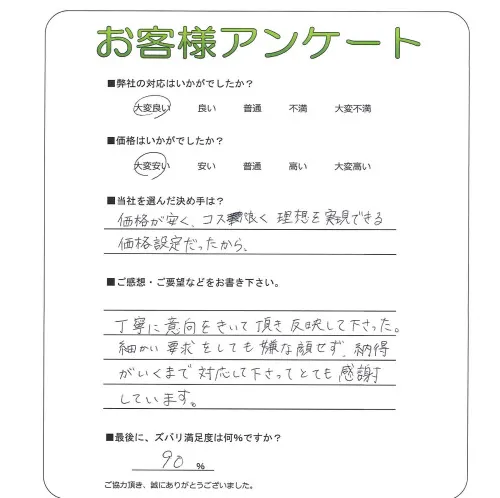 お客様アンケート
■弊社の対応はいかがでしたか？
大変良い 良い 普通 不満 大変不満
■価格はいかがでしたか？
大変安い 安い 普通 高い 大変高い
■当社を選んだ決め手は？
価格が安く、コス 良く 理想を実現できる
価格設定だったから、
■ご感想・ご要望などをお書き下さい。
丁寧に意向をきいて頂き反映して下さった。
細かい要求をしても嫌な顔せず、納得
がいくまで対応して下さってとても感謝
しています。
■最後に、ズバリ満足度は何％ですか？
90 %
ご協力頂き、誠にありがとうございました。